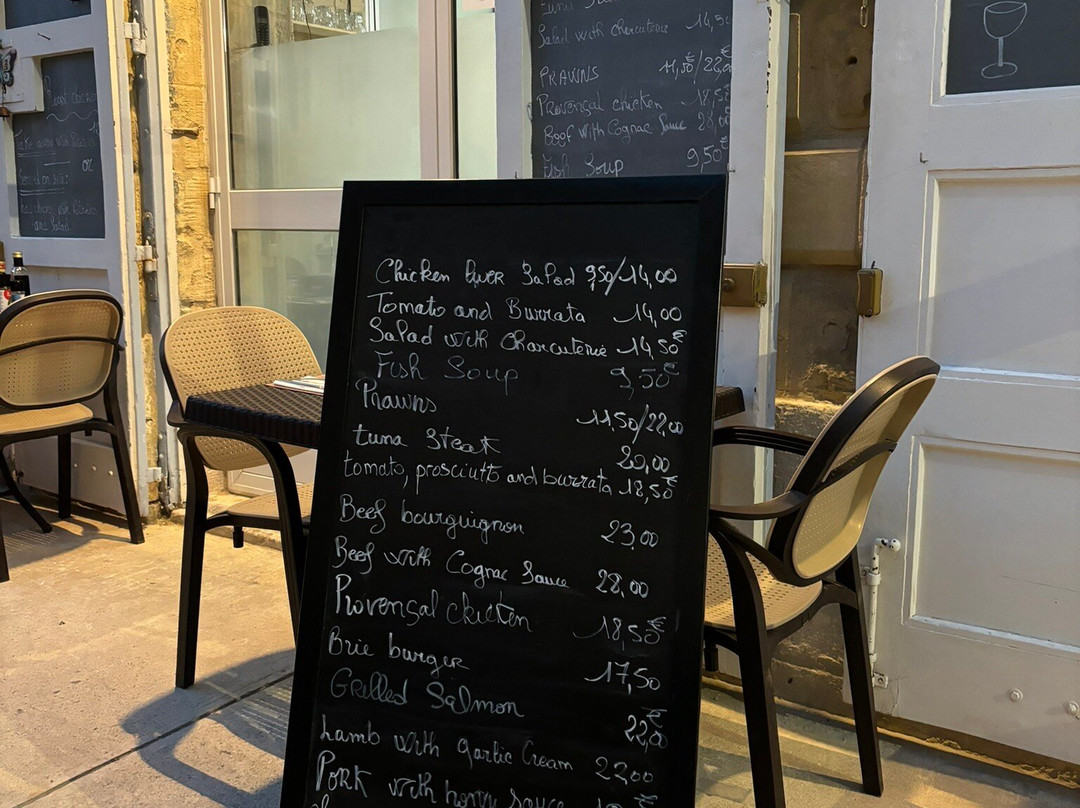 Salad with Charcuterie 14,50
PRAWNS 11,50/22,00€
Provençal chicken 18,50
Beef with Cognac Sauce 28,00
Fish Soup 9,50€
or
Chicken liver Salad 9,50/14,00
Tomato and Burrata 14,00
Salad with Charcuterie 14,50€
Fish Soup 9,50€
Prawns 11,50/22,00
tuna Steak 20,00
tomato, prosciutto and burrata 18,50€
Beef bourguignon 23,00
Beef with Cognac Sauce 28,00
Provençal chicken 18,50€
Brie burger 17,50
Grilled Salmon 22,00€
Lamb with garlic Cream 22,00
Pork with honey Sauce